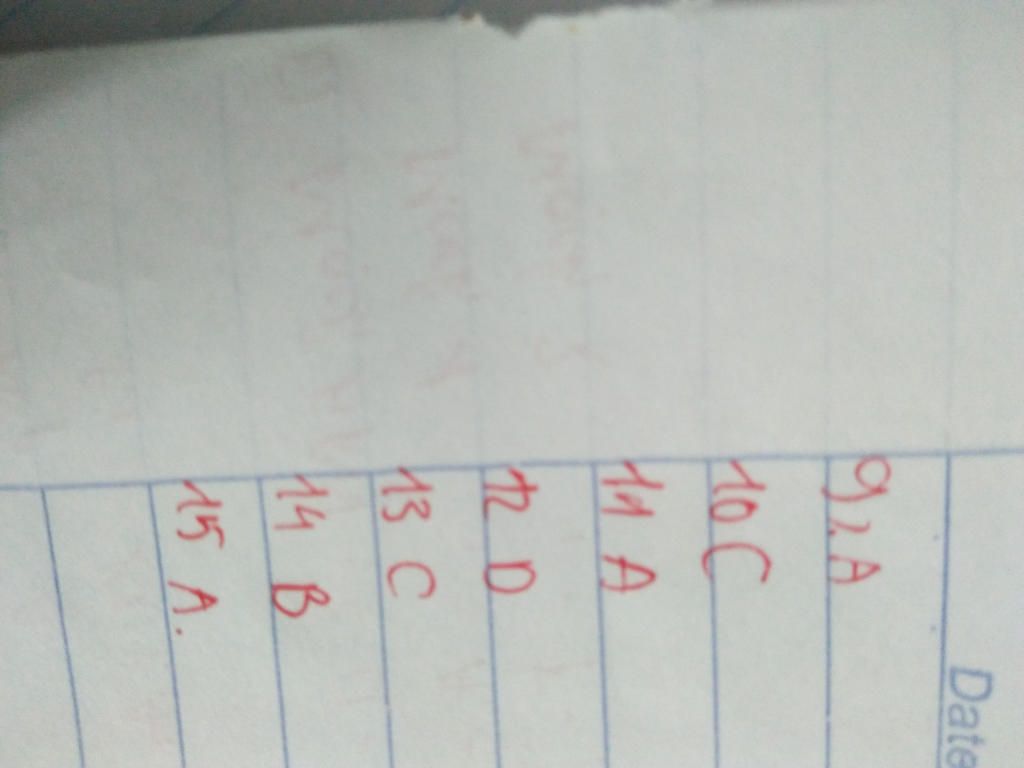 Date
9, A
10 C
11 A
12 D
13 C
14 B
15 A.